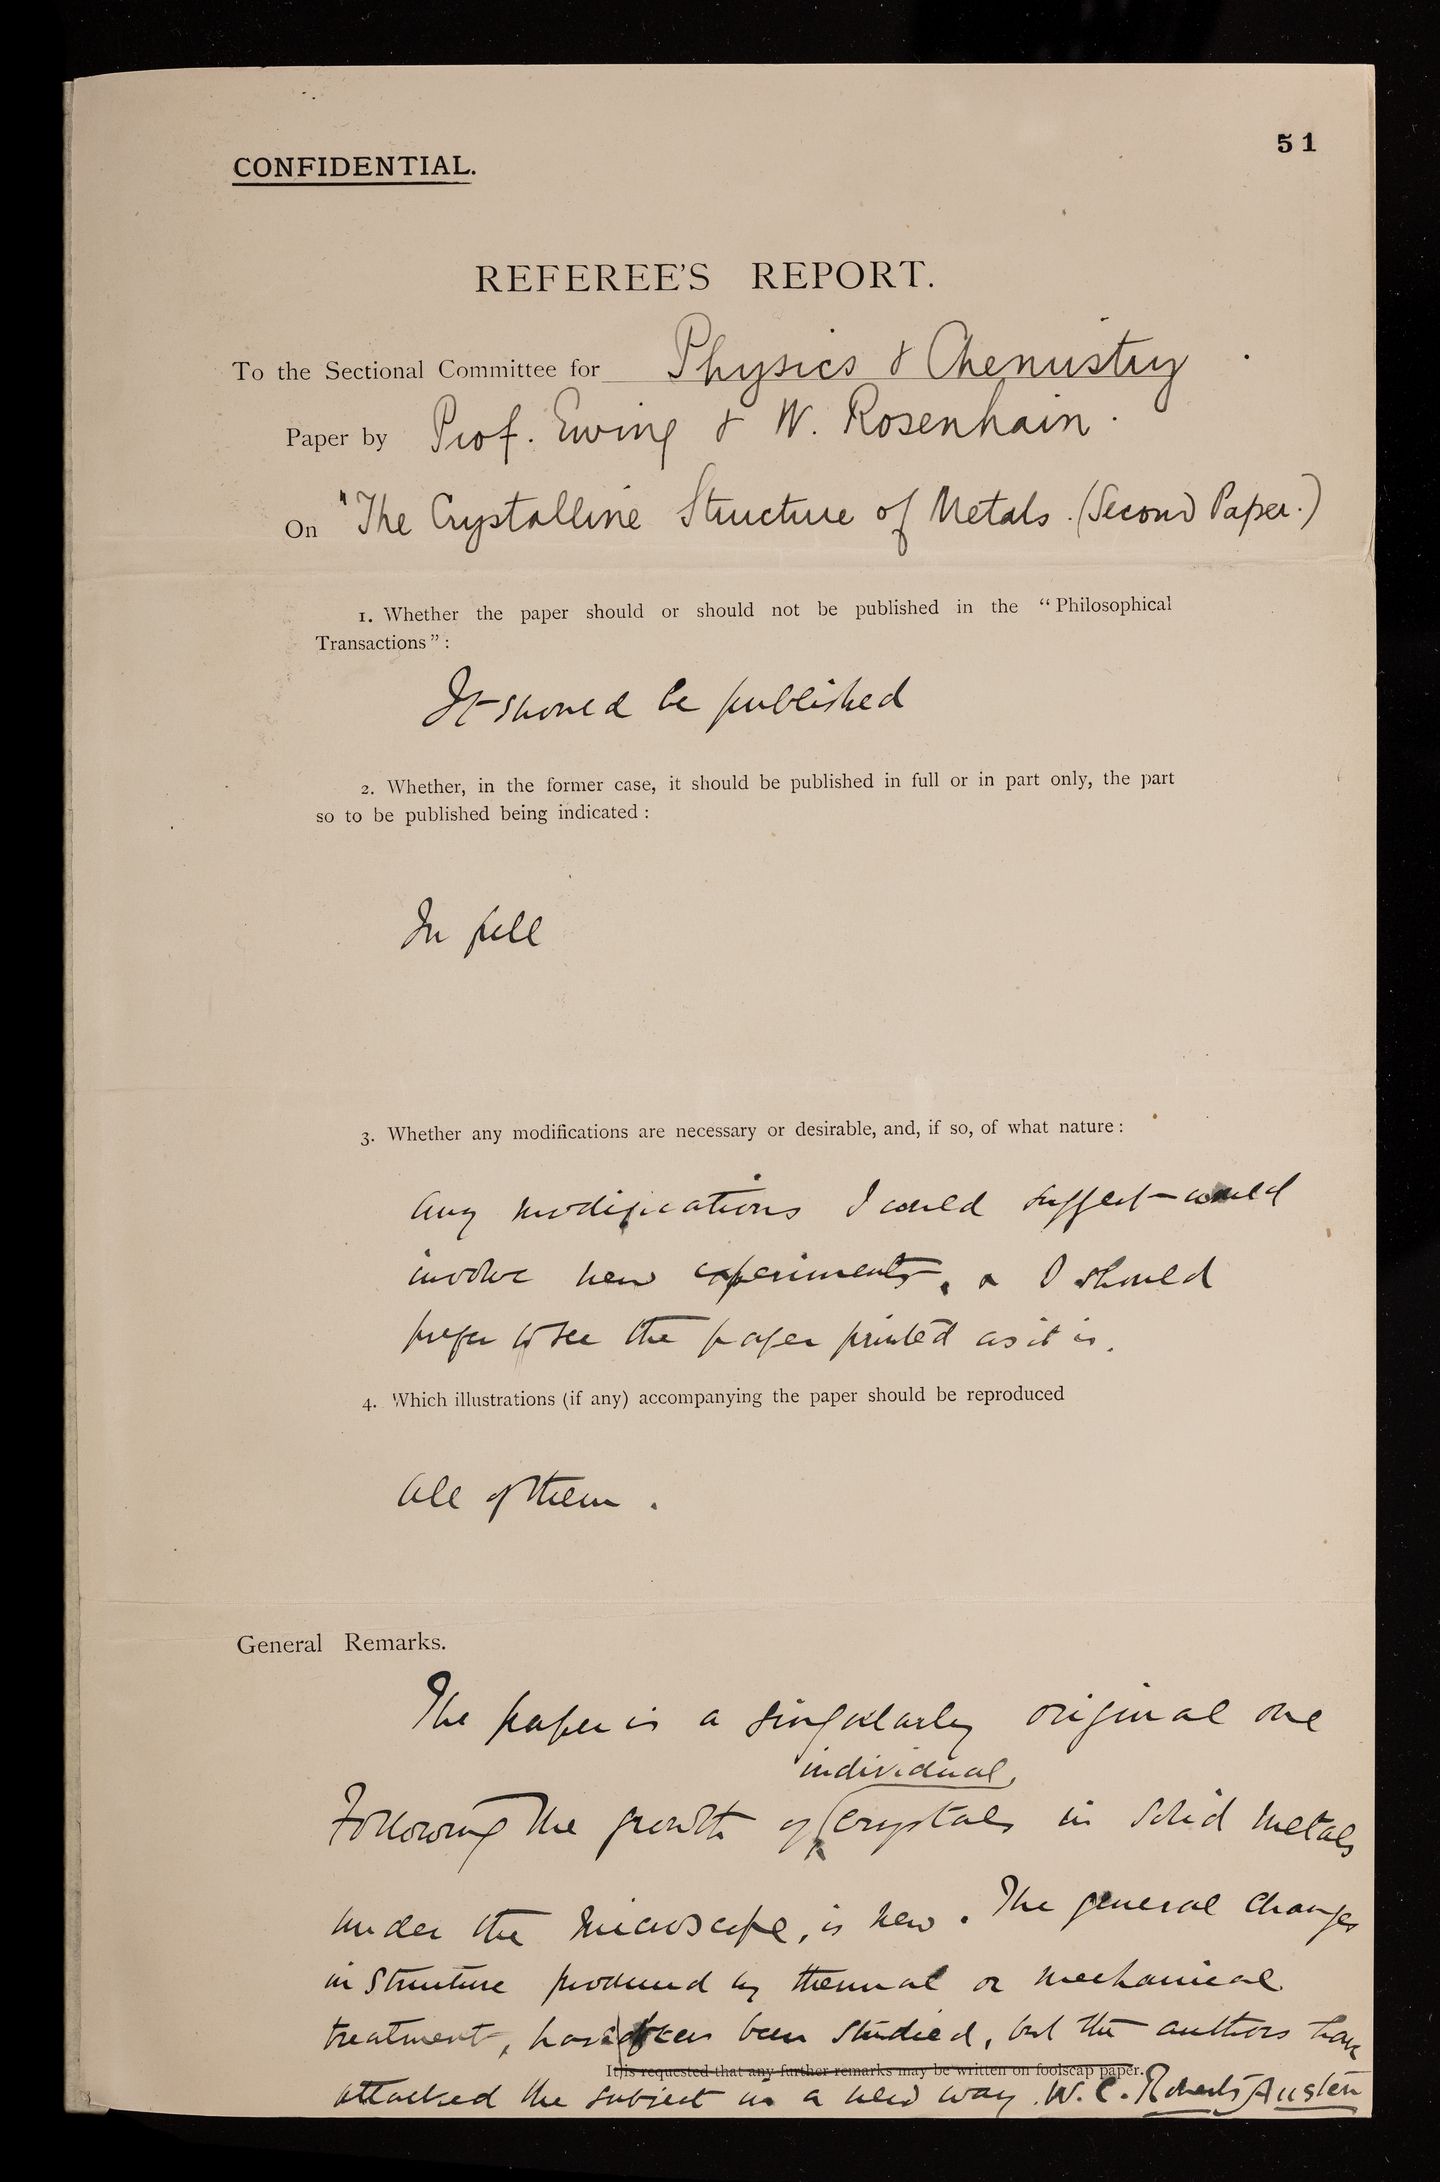 51
CONFIDENTIAL.
REFEREE'S REPORT.
To the Sectional Committee for Physics & Chemistry
Paper by Prof. Ewing & W. Rosenhain.
On "The Crystalline Structure of Metals. (Second Paper.)
1. Whether the paper should or should not be published in the "Philosophical
Transactions":
It should be published
2. Whether, in the former case, it should be published in full or in part only, the part
so to be published being indicated:
In full
3. Whether any modifications are necessary or desirable, and, if so, of what nature:
Any modifications I could suggest would
involve new experiments, & I should
prefer to see the paper printed as it is.
4. Which illustrations (if any) accompanying the paper should be reproduced
All of them.
General Remarks.
The paper is a singularly original one
individual
Following the growth of crystals in solid metals
under the microscope, is new. The general changes
in structure produced by thermal or mechanical
treatment, have often been studied, but the authors have
It is requested that any further remarks may be written on foolscap paper.
attacked the subject in a new way. W. C. Roberts-Austen